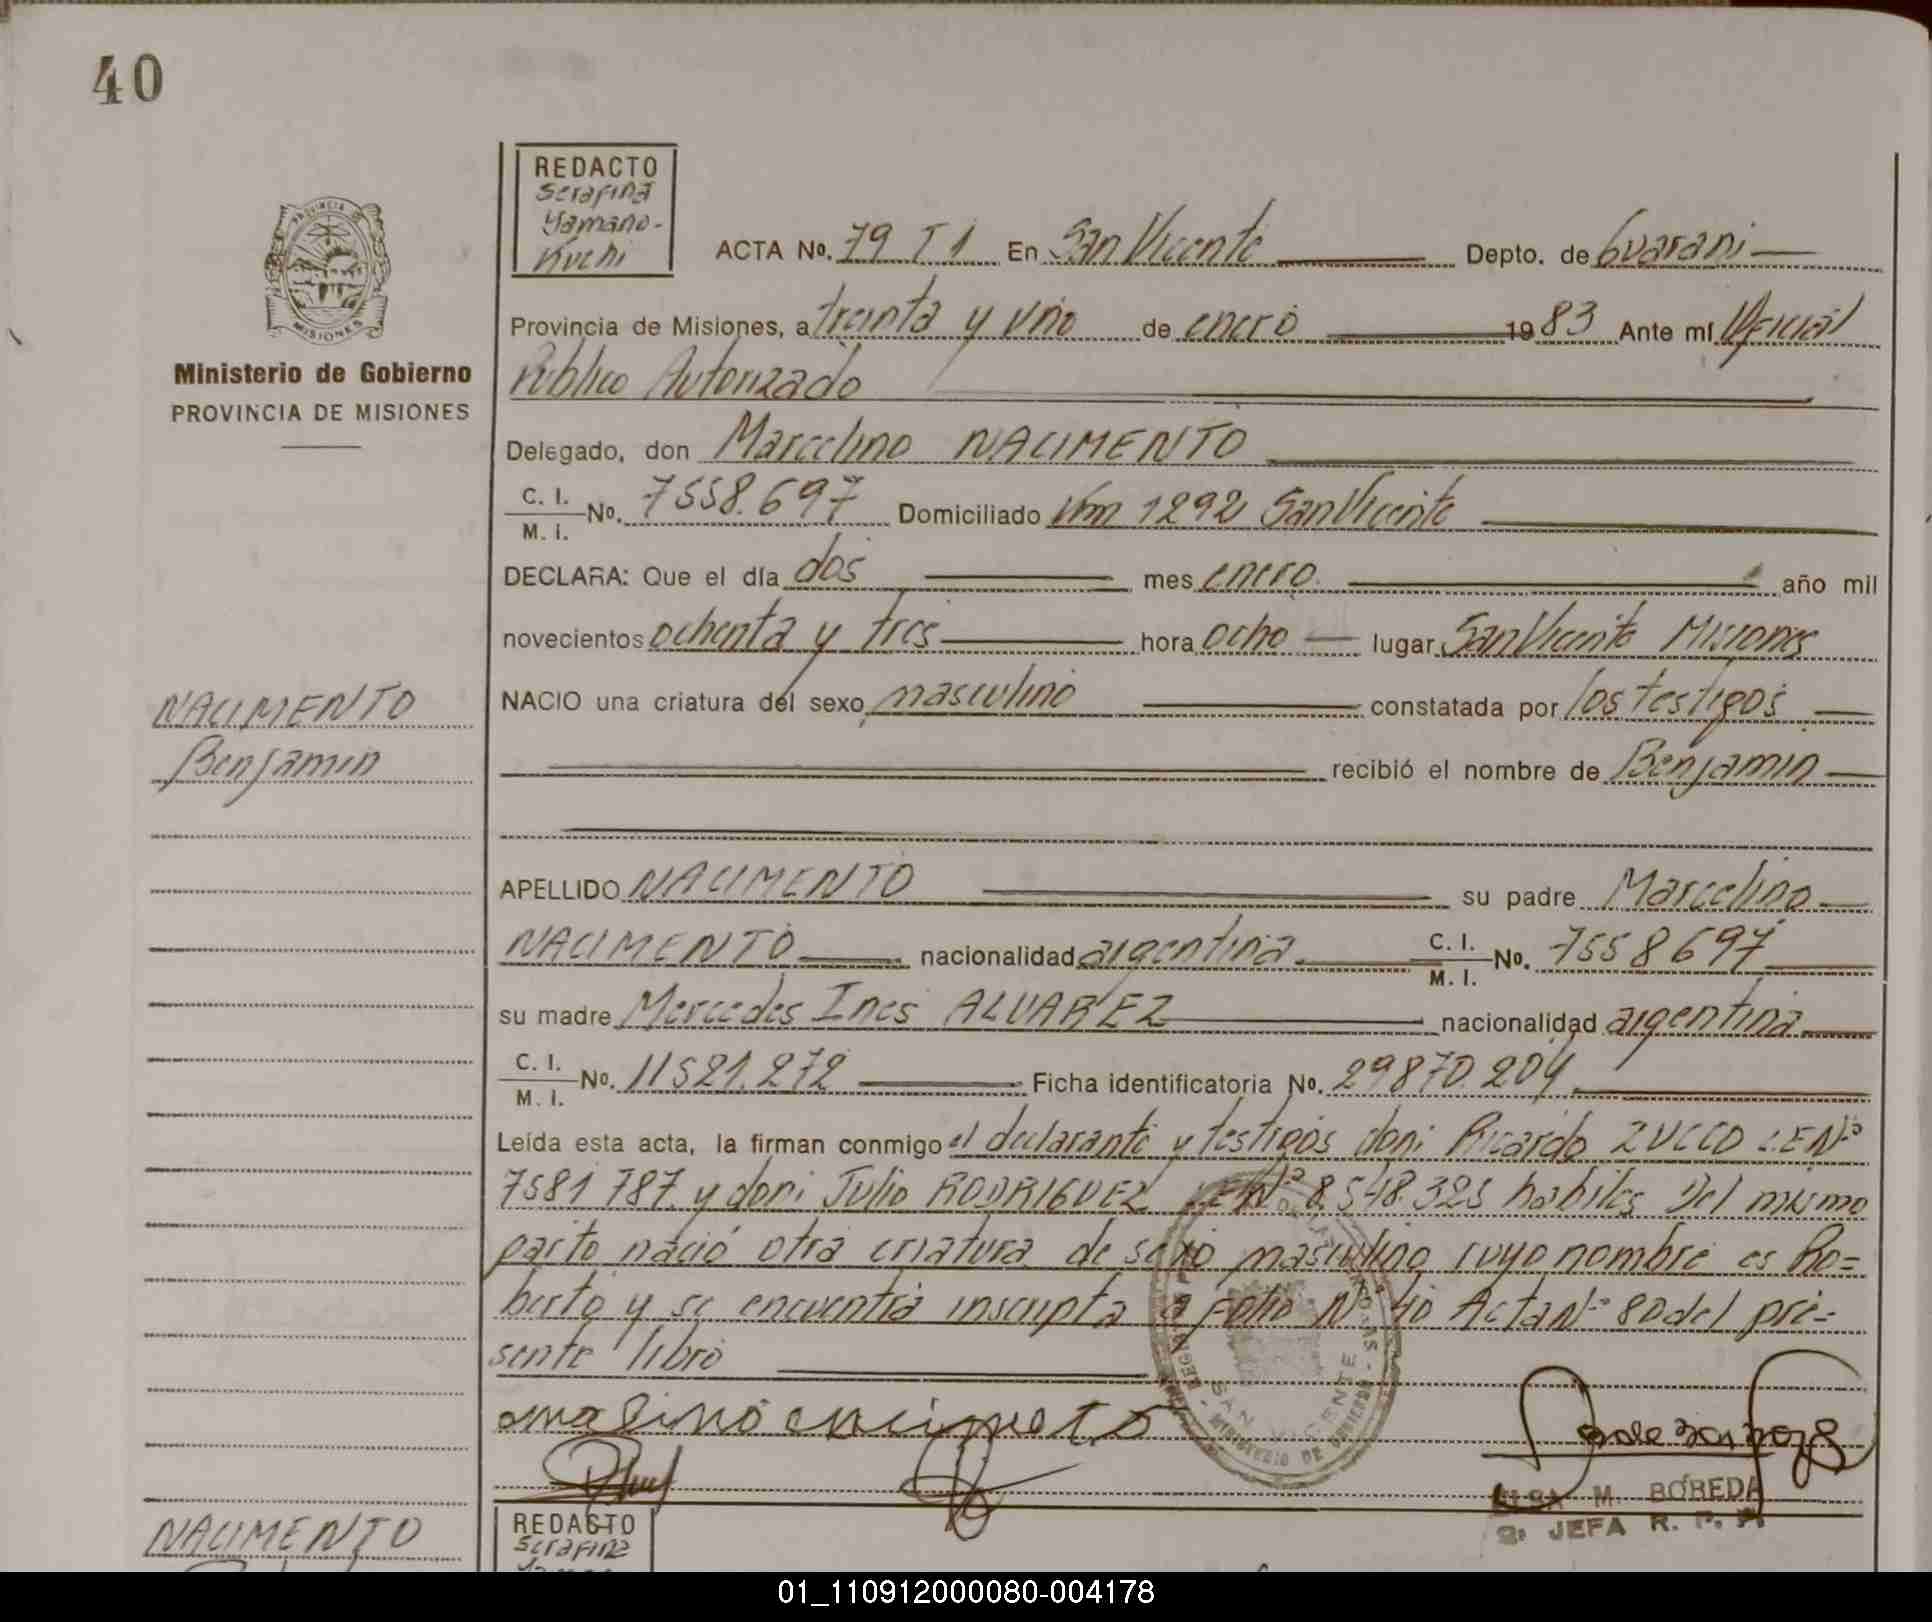 40
REDACTO
Serafina
Yamano-
Kuchi
PROVINCIA DE
MISIONES
Ministerio de Gobierno
PROVINCIA DE MISIONES
ACTA No. 79 T 1 En San Vicente Depto. de Guarani
Provincia de Misiones, a treinta y uno de enero 1983 Ante mí Oficial
Publico Autorizado
Delegado, don Marcelino NACIMENTO
C. I. M. I. No. 7558.697 Domiciliado Km 1292 San Vicente
DECLARA: Que el día dos mes enero año mil
novecientos ochenta y tres hora ocho lugar San Vicente Misiones
NACIO una criatura del sexo masculino constatada por los testigos
recibió el nombre de Benjamin
NACIMENTO
Benjamin
APELLIDO NACIMENTO su padre Marcelino
NACIMENTO nacionalidad argentina C. I. M. I. No. 7558697
su madre Mercedes Ines ALVAREZ nacionalidad argentina
C. I. M. I. No. 11521.272 Ficha identificatoria No. 29870.204
Leída esta acta, la firman conmigo el declarante y testigos don: Ricardo ZUCCO L.E Nº
7581787 y don: Julio RODRIGUEZ L.E Nº 8.548.325 habiles Del mismo
parto nació otra criatura de sexo masculino cuyo nombre es Ro=
berto y se encuentra inscripta a folio Nº 40 Acta Nº 80 del pre=
sente libro
SAN VICENTE
MINISTERIO DE GOBIERNO
M. BOREDA
JEFA R. P.
NACIMENTO
REDACTO
Serafina
01_110912000080-004178